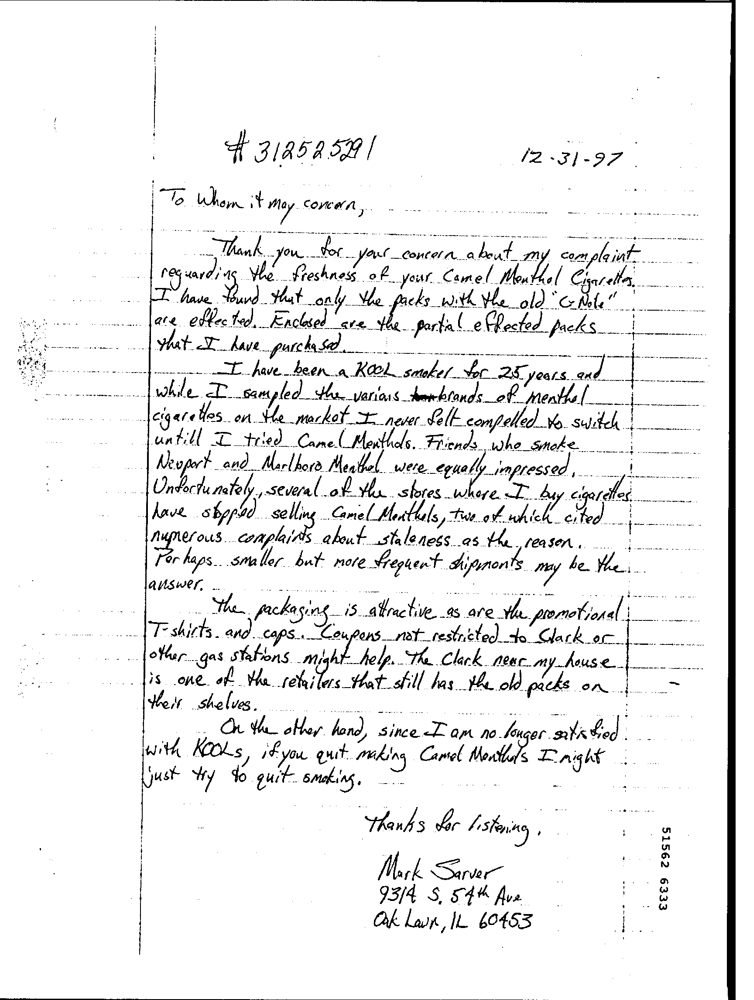 # 312525291
12-31-97
To Whom it may concern,
Thank you for your concern about my complaint
reguarding the freshness of your Camel Menthol Cigarettes.
I have found that only the packs with the old "C-Note"
are effected. Enclosed are the partial effected packs
that I have purchased.
I have been a KOOL smoker for 25 years and
while I sampled the various brands of menthol
cigarettes on the market I never felt compelled to switch
untill I tried Camel Menthols. Friends who smoke
Newport and Marlboro Menthol were equally impressed.
Unfortunately, several of the stores where I buy cigarettes
have stopped selling Camel Menthols, two of which cited
numerous complaints about staleness as the reason.
Perhaps smaller but more frequent shipments may be the
answer.
The packaging is attractive as are the promotional
T-shirts and caps. Coupons not restricted to Clark or
other gas stations might help. The Clark near my house
is one of the retailers that still has the old packs on
their shelves.
On the other hand, since I am no longer satisfied
with KOOLs, if you quit making Camel Menthols I might
just try to quit smoking.
Thanks for listening.
Mark Sarver
9314 S. 54th Ave
Oak Lawn, IL 60453
51562 6333